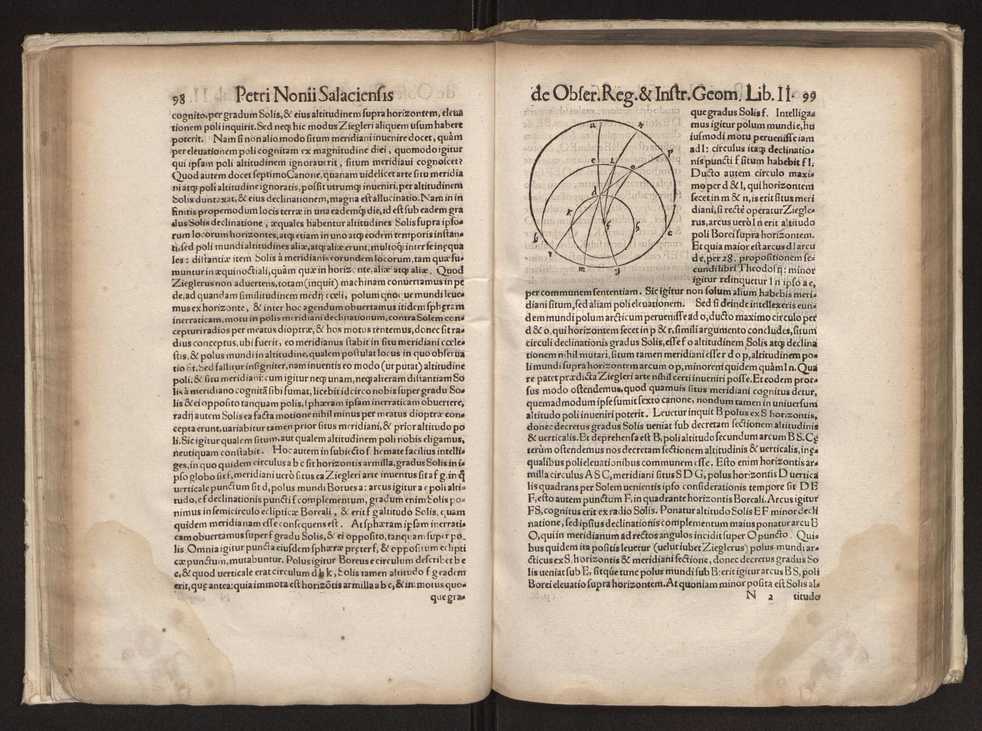 98 Petri Nonii Salaciensis
cognito, per gradum Solis, & eius altitudinem supra horizontem, eleua
tionem poli inquirit. Sed neq; hic modus Ziegleri aliquem usum habere
poterit. Nam si non alio modo situm meridiani inuenire docet, quàm
per eleuationem poli cognitam ex magnitudine diei, quomodo igitur
qui ipsam poli altitudinem ignorauerit, situm meridiaui cognoscet?
Quod autem docet septimo Canone, quanam uidelicet arte situ meridia
ni atq; poli altitudine ignoratis, possit utrumq; inueniri, per altitudinem
Solis duntaxat, & eius declinationem, magna est allucinatio. Nam in in
finitis propemodum locis terræ in una eademq; die, id est sub eadem gra
dus Solis declinatione, æquales habentur altitudines Solis supra ipso-
rum locorum horizontes, atq; etiam in uno atq; eodem temporis instan-
ti, sed poli mundi altitudines aliæ, atq; aliæ erunt, multoq; inter se inæqua
les: distantiæ item Solis à meridianis eorundem locorum, tam quæ su-
muntur in æquinoctiali, quàm quæ in horizonte, aliæ atq; aliæ. Quod
Zieglerus non aduertens, totam (inquit) machinam conuertamus in pe
de, ad quandam similitudinem medij cœli, polumq́; no ue mundi leue-
mus ex horizonte, & inter hoc agendum obuertamus itidem sphæram
inerraticam, motu in polis meridiani declinationum, contra Solem con-
cepturi radios per meatus dioptræ, & hos motus tentemus, donec sit ra-
dius conceptus, ubi fuerit, eo meridianus stabit in situ meridiani cœle-
stis, & polus mundi in altitudine, qualem postulat locus in quo obserua
tio sit. Sed fallitur insigniter, nam inuentis eo modo (ut putat) altitudine
poli, & situ meridiani: cum igitur neq; unam, neq; alteram distantiam So
lis à meridiano cognitã sibi sumat, licebit id circo nobis super gradu So-
lis & ei opposito tanquam polis, sphæram ipsam inerraticam obuertere,
radij autem Solis ea facta motione nihil minus per meatus dioptræ con-
cepta erunt, uariabitur tamen prior situs meridiani, & prior altitudo po
li. Sic igitur qualem situm, aut qualem altitudinem poli nobis eligamus,
neutiquam constabit. Hoc autem in subiecto schemate facilius intelli-
ges, in quo quidem circulus a b c sit horizontis armilla, gradus Solis in i-
pso globo sit f, meridiani uerò situs ex Ziegleri arte inuentus sit a f g, in q̃
uerticale punctum sit d, polus mundi Boreus e: arcus igitur a e poli alti-
tudo, e f declinationis puncti f complementum, gradum enim Solis po-
nimus in semicirculo eclipticæ Boreali, & erit f g altitudo Solis, quam
quidem meridianam esse consequens est. At sphæram ipsam inerrati-
cam obuertamus super f gradu Solis, & ei opposito, tanquam super po-
lis Omnia igitur puncta eiusdem sphæræ præter f, & oppositum eclipti
cæ punctum, mutabuntur. Polus igitur Boreus e circulum describet h e
e, & quod uerticale erat circulum d k, Solis tamen altitudo f g eadem
erit, quę antea: quia immota est horizõtis armilla a b c, & immotus quo-
que gra-
de Obser. Reg. & Instr. Geom. Lib. II. 99
que gradus Solis f. Intelliga-
mus igitur polum mundi e, hu
iusmodi motu peruenisse iam
ad l: circulus itaq; declinatio-
nis puncti f situm habebit f l.
Ducto autem circulo maxi-
mo per d & l, qui horizontem
secet in m & n, is erit situs meri
diani, si rectè operatur Ziegle-
rus, arcus uerò l n erit altitudo
poli Borei supra horizontem.
Et quia maior est arcus d l arcu
d e, per 28. propositionem se-
cundi libri Theodosij: minor
igitur relinquetur l n ipso a e,
per communem sententiam. Sic igitur non solum alium habebis meri-
diani situm, sed aliam poli eleuationem. Sed si deinde intellexeris eun-
dem mundi polum arcticum peruenisse ad o, ducto maximo circulo per
d & o, qui horizontem secet in p & r, simili argumento concludes, situm
circuli declinationis gradus Solis, esse f o altitudinem Solis atq; declina
tionem nihil mutari, situm tamen meridiani esse r d o p, altitudinem po-
li mundi supra horizontem arcum o p, minorem quidem quàm l n. Qua
re patet prædicta Ziegleri arte nihil certi inueniri posse. Et eodem pror-
sus modo ostendemus, quod quamuis situs meridiani cognitus detur,
quemadmodum ipse sumit sexto canone, nondum tamen in uniuersum
altitudo poli inueniri poterit. Leuetur inquit B polus ex S horizontis,
donec decretus gradus Solis ueniat sub decretam sectionem altitudinis
& uerticalis. Et deprehensa est B, poli altitudo secundum arcum B S. Cę
terùm ostendemus nos decretam sectionem altitudinis & uerticalis, inę-
qualibus poli eleuationibus communem esse. Esto enim horizontis ar-
milla circulus A S C, meridiani situs S D G, polus horizontis D uertica
lis quadrans per Solem uenientis ipso considerationis tempore sit D E
F, esto autem punctum F, in quadrante horizontis Boreali. Arcus igitur
FS, cognitus erit ex radio Solis. Ponatur altitudo Solis EF minor decli
natione, sed ipsius declinationis complementum maius ponatur arcu B
O, qui in meridianum ad rectos angulos incidit super O puncto. Qui-
bus quidem ita positis leuetur (uelut iubet Zieglerus) polus mundi ar-
cticus ex S, horizontis & meridiani sectione, donec decretus gradus So
lis ueniat sub E, sitq́ue tunc polus mundi sub B: erit igitur arcus BS, poli
Borei eleuatio supra horizontem. At quoniam minor posita est Solis al-
N 2 titudo